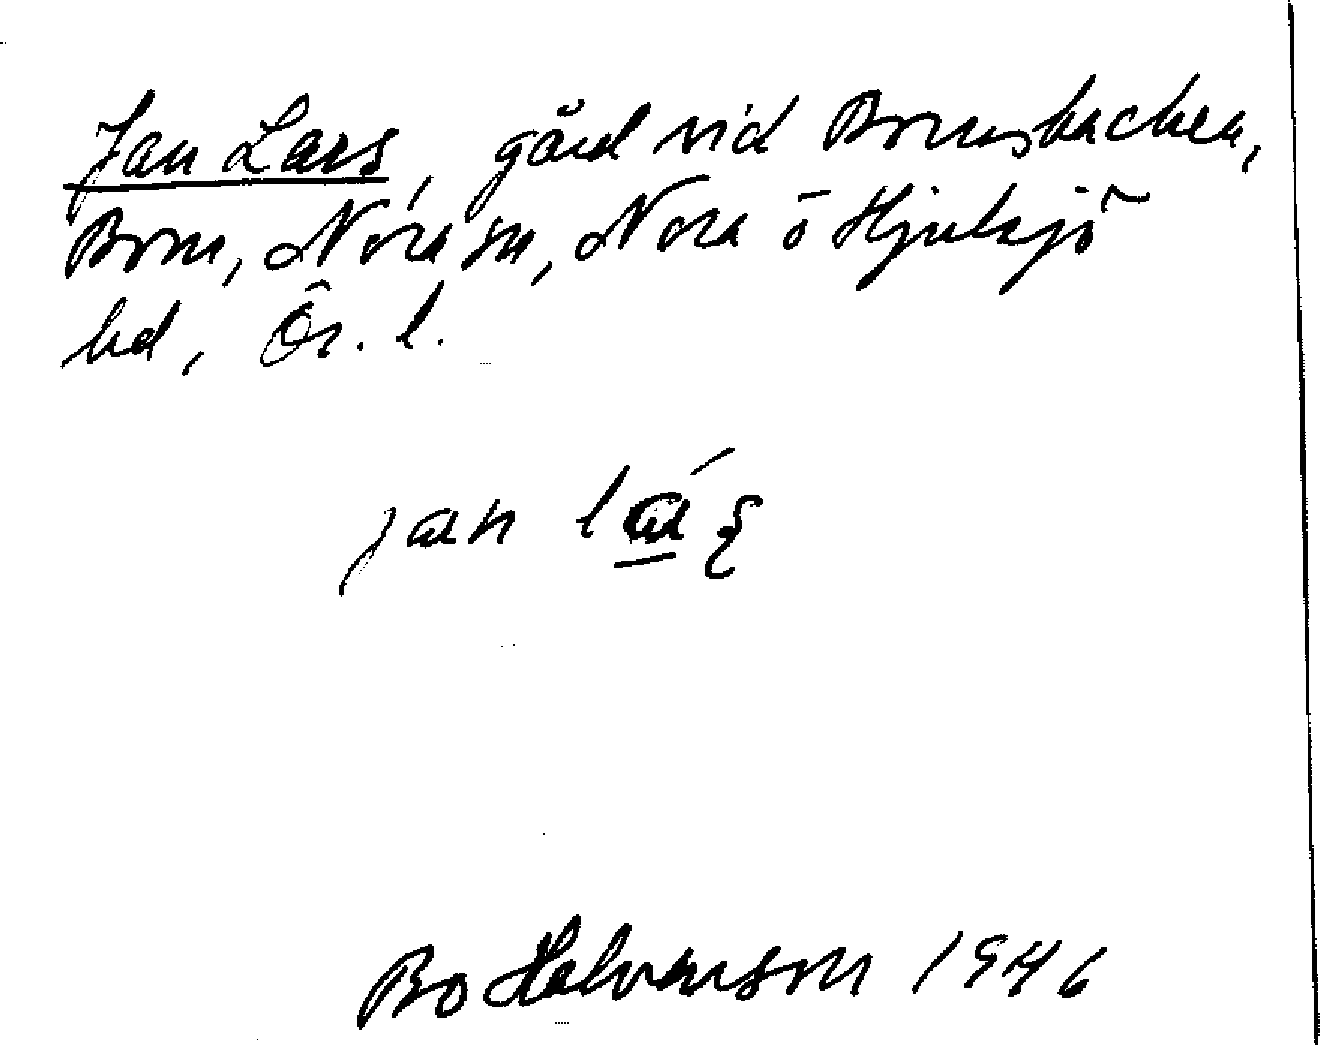 Jan Lars, gård vid Bornsbacken,
Born, Nora sn, Nora o Hjulsjö
bd, Ör. l.
jan lá̱ʂ
Bo Halvarson 1946